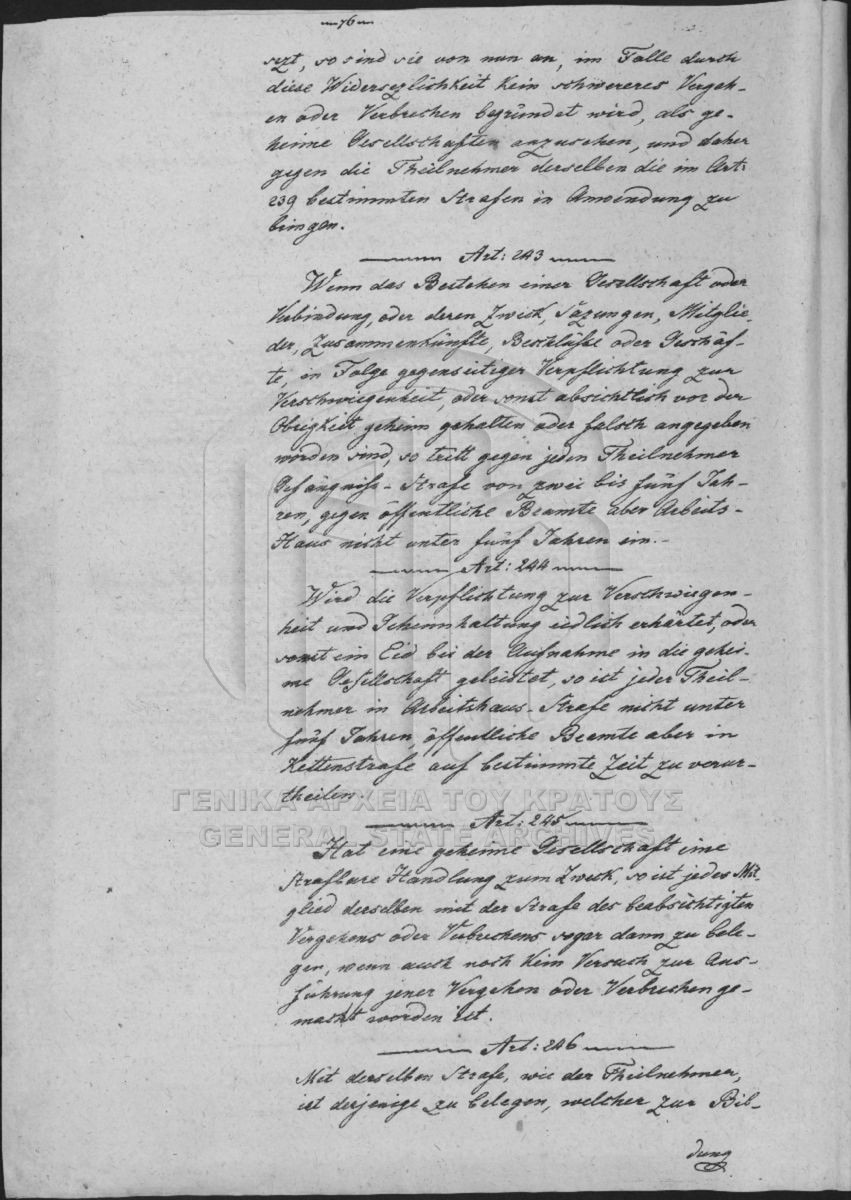 76
sezt, so sind sie von nun an, im Falle durch
diese Widersezlichkeit kein schwereres Vergeh-
en oder Verbrechen begründet wird, als ge-
heime Gesellschaften anzusehen, und daher
gegen die Theilnehmer derselben die im Art:
239 bestimmten Strafen in Anwendung zu
bringen.
Art: 243
Wenn das Bestehen einer Gesellschaft oder
Verbindung, oder deren Zweck, Säzungen, Mitglie-
der, Zusammenkünfte, Beschlüße oder Geschäf-
te, in Folge gegenseitiger Verpflichtung zur
Verschwiegenheit, oder sonst absichtlich vor der
Obrigkeit geheim gehalten oder falsch angegeben
worden sind, so tritt gegen jeden Theilnehmer
Gefängniß-Strafe von zwei bis fünf Jah-
ren, gegen öffentliche Beamte aber Arbeits-
Haus nicht unter fünf Jahren ein.-
Art: 244
Wird die Verpflichtung zur Verschwiegen-
heit und Geheimhaltung eidlich erhärtet, oder
sonst ein Eid bei der Aufnahme in die gehei-
me Gesellschaft geleistet, so ist jeder Theil-
nehmer in Arbeitshaus-Strafe nicht unter
fünf Jahren, öffentliche Beamte aber in
Kettenstrafe auf bestimmte Zeit zu verur-
theilen
ΓΕΝΙΚΑ ΑΡΧΕΙΑ ΤΟΥ ΚΡΑΤΟΥΣ
Art: 245
GENERAL STATE ARCHIVES
Hat eine geheime Gesellschaft eine
strafbare Handlung zum Zweck, so ist jedes Mit-
glied derselben mit der Strafe des beabsichtigten
Vergehens oder Verbrechens sogar dann zu bele-
gen, wenn auch noch kein Versuch zur Aus-
führung jener Vergehen oder Verbrechen ge-
macht worden ist.
Art: 246
Mit derselben Strafe, wie der Theilnehmer,
ist derjenige zu belegen, welcher zur Bil-
dung